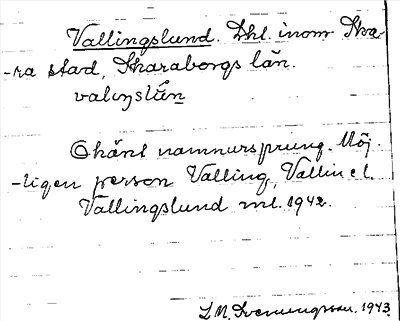 Vallingslund. Lhl. inom Ska-
-ra stad, Skaraborgs län.
valıŋslún
Okänt namnursprung. Möj-
-ligen person Valling, Vallin el.
Vallingslund ml. 1942.
L M. Svenungsson. 1943.